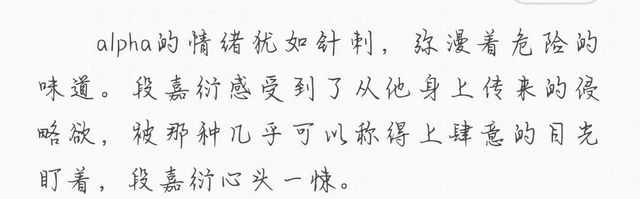 alpha的情绪犹如针刺，弥漫着危险的
味道。段嘉衍感受到了从他身上传来的侵
略欲，被那种几乎可以称得上肆意的目光
盯着，段嘉衍心头一悚。